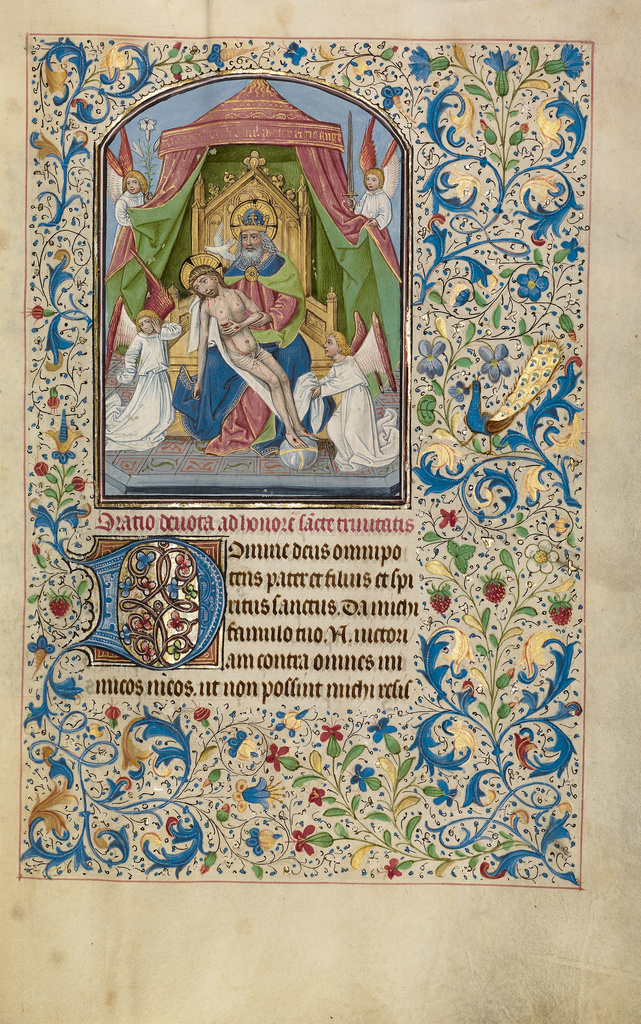 Oratio deuota ad honorē sācte trinitatis
Domine deus omnipo
tens pater et filius et spi
ritus sanctus. Da michi
famulo tuo .N. uictori
am contra omnes ini
micos meos. ut non possint michi resis